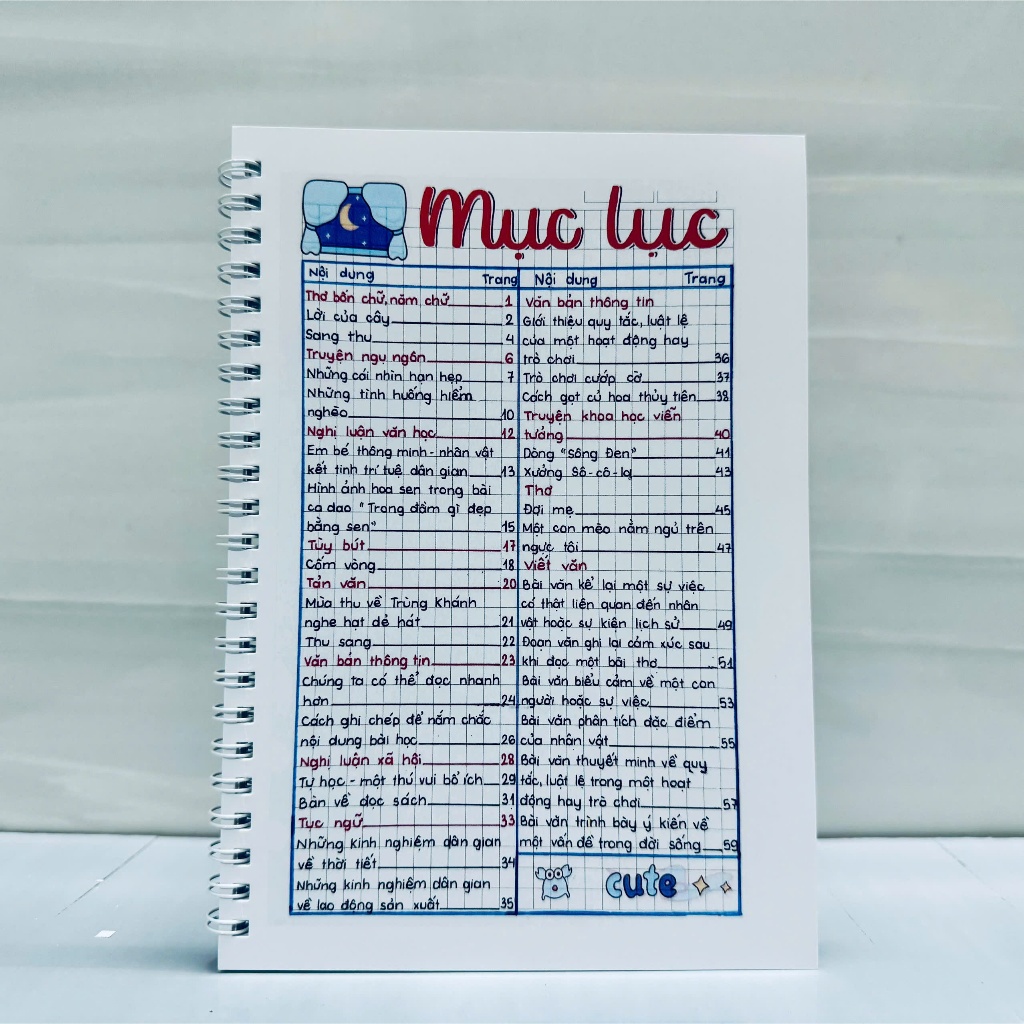 Mục lục
Nội dung Trang
Thơ bốn chữ, năm chữ 1
Lời của cây 2
Sang thu 4
Truyện ngụ ngôn 6
Những cái nhìn hạn hẹp 7
Những tình huống hiểm
nghèo 10
Nghị luận văn học 12
Em bé thông minh - nhân vật
kết tinh trí tuệ dân gian 13
Hình ảnh hoa sen trong bài
ca dao "Trong đầm gì đẹp
bằng sen" 15
Tùy bút 17
Cốm vòng 18
Tản văn 20
Mùa thu về Trùng Khánh
nghe hạt dẻ hát 21
Thu sang 22
Văn bản thông tin 23
Chúng ta có thể đọc nhanh
hơn 24
Cách ghi chép để nắm chắc
nội dung bài học 26
Nghị luận xã hội 28
Tự học - một thú vui bổ ích 29
Bàn về đọc sách 31
Tục ngữ 33
Những kinh nghiệm dân gian
về thời tiết 34
Những kinh nghiệm dân gian
về lao động sản xuất 35
Nội dung Trang
Văn bản thông tin
Giới thiệu quy tắc, luật lệ
của một hoạt động hay
trò chơi 36
Trò chơi cướp cờ 37
Cách gọt củ hoa thủy tiên 38
Truyện khoa học viễn
tưởng 40
Dòng "Sông Đen" 41
Xưởng Sô-cô-la 43
Thơ
Đợi mẹ 45
Một con mèo nằm ngủ trên
ngực tôi 47
Viết văn
Bài văn kể lại một sự việc
có thật liên quan đến nhân
vật hoặc sự kiện lịch sử 49
Đoạn văn ghi lại cảm xúc sau
khi đọc một bài thơ 51
Bài văn biểu cảm về một con
người hoặc sự việc 53
Bài văn phân tích đặc điểm
của nhân vật 55
Bài văn thuyết minh về quy
tắc, luật lệ trong một hoạt
động hay trò chơi 57
Bài văn trình bày ý kiến về
một vấn đề trong đời sống 59
cute